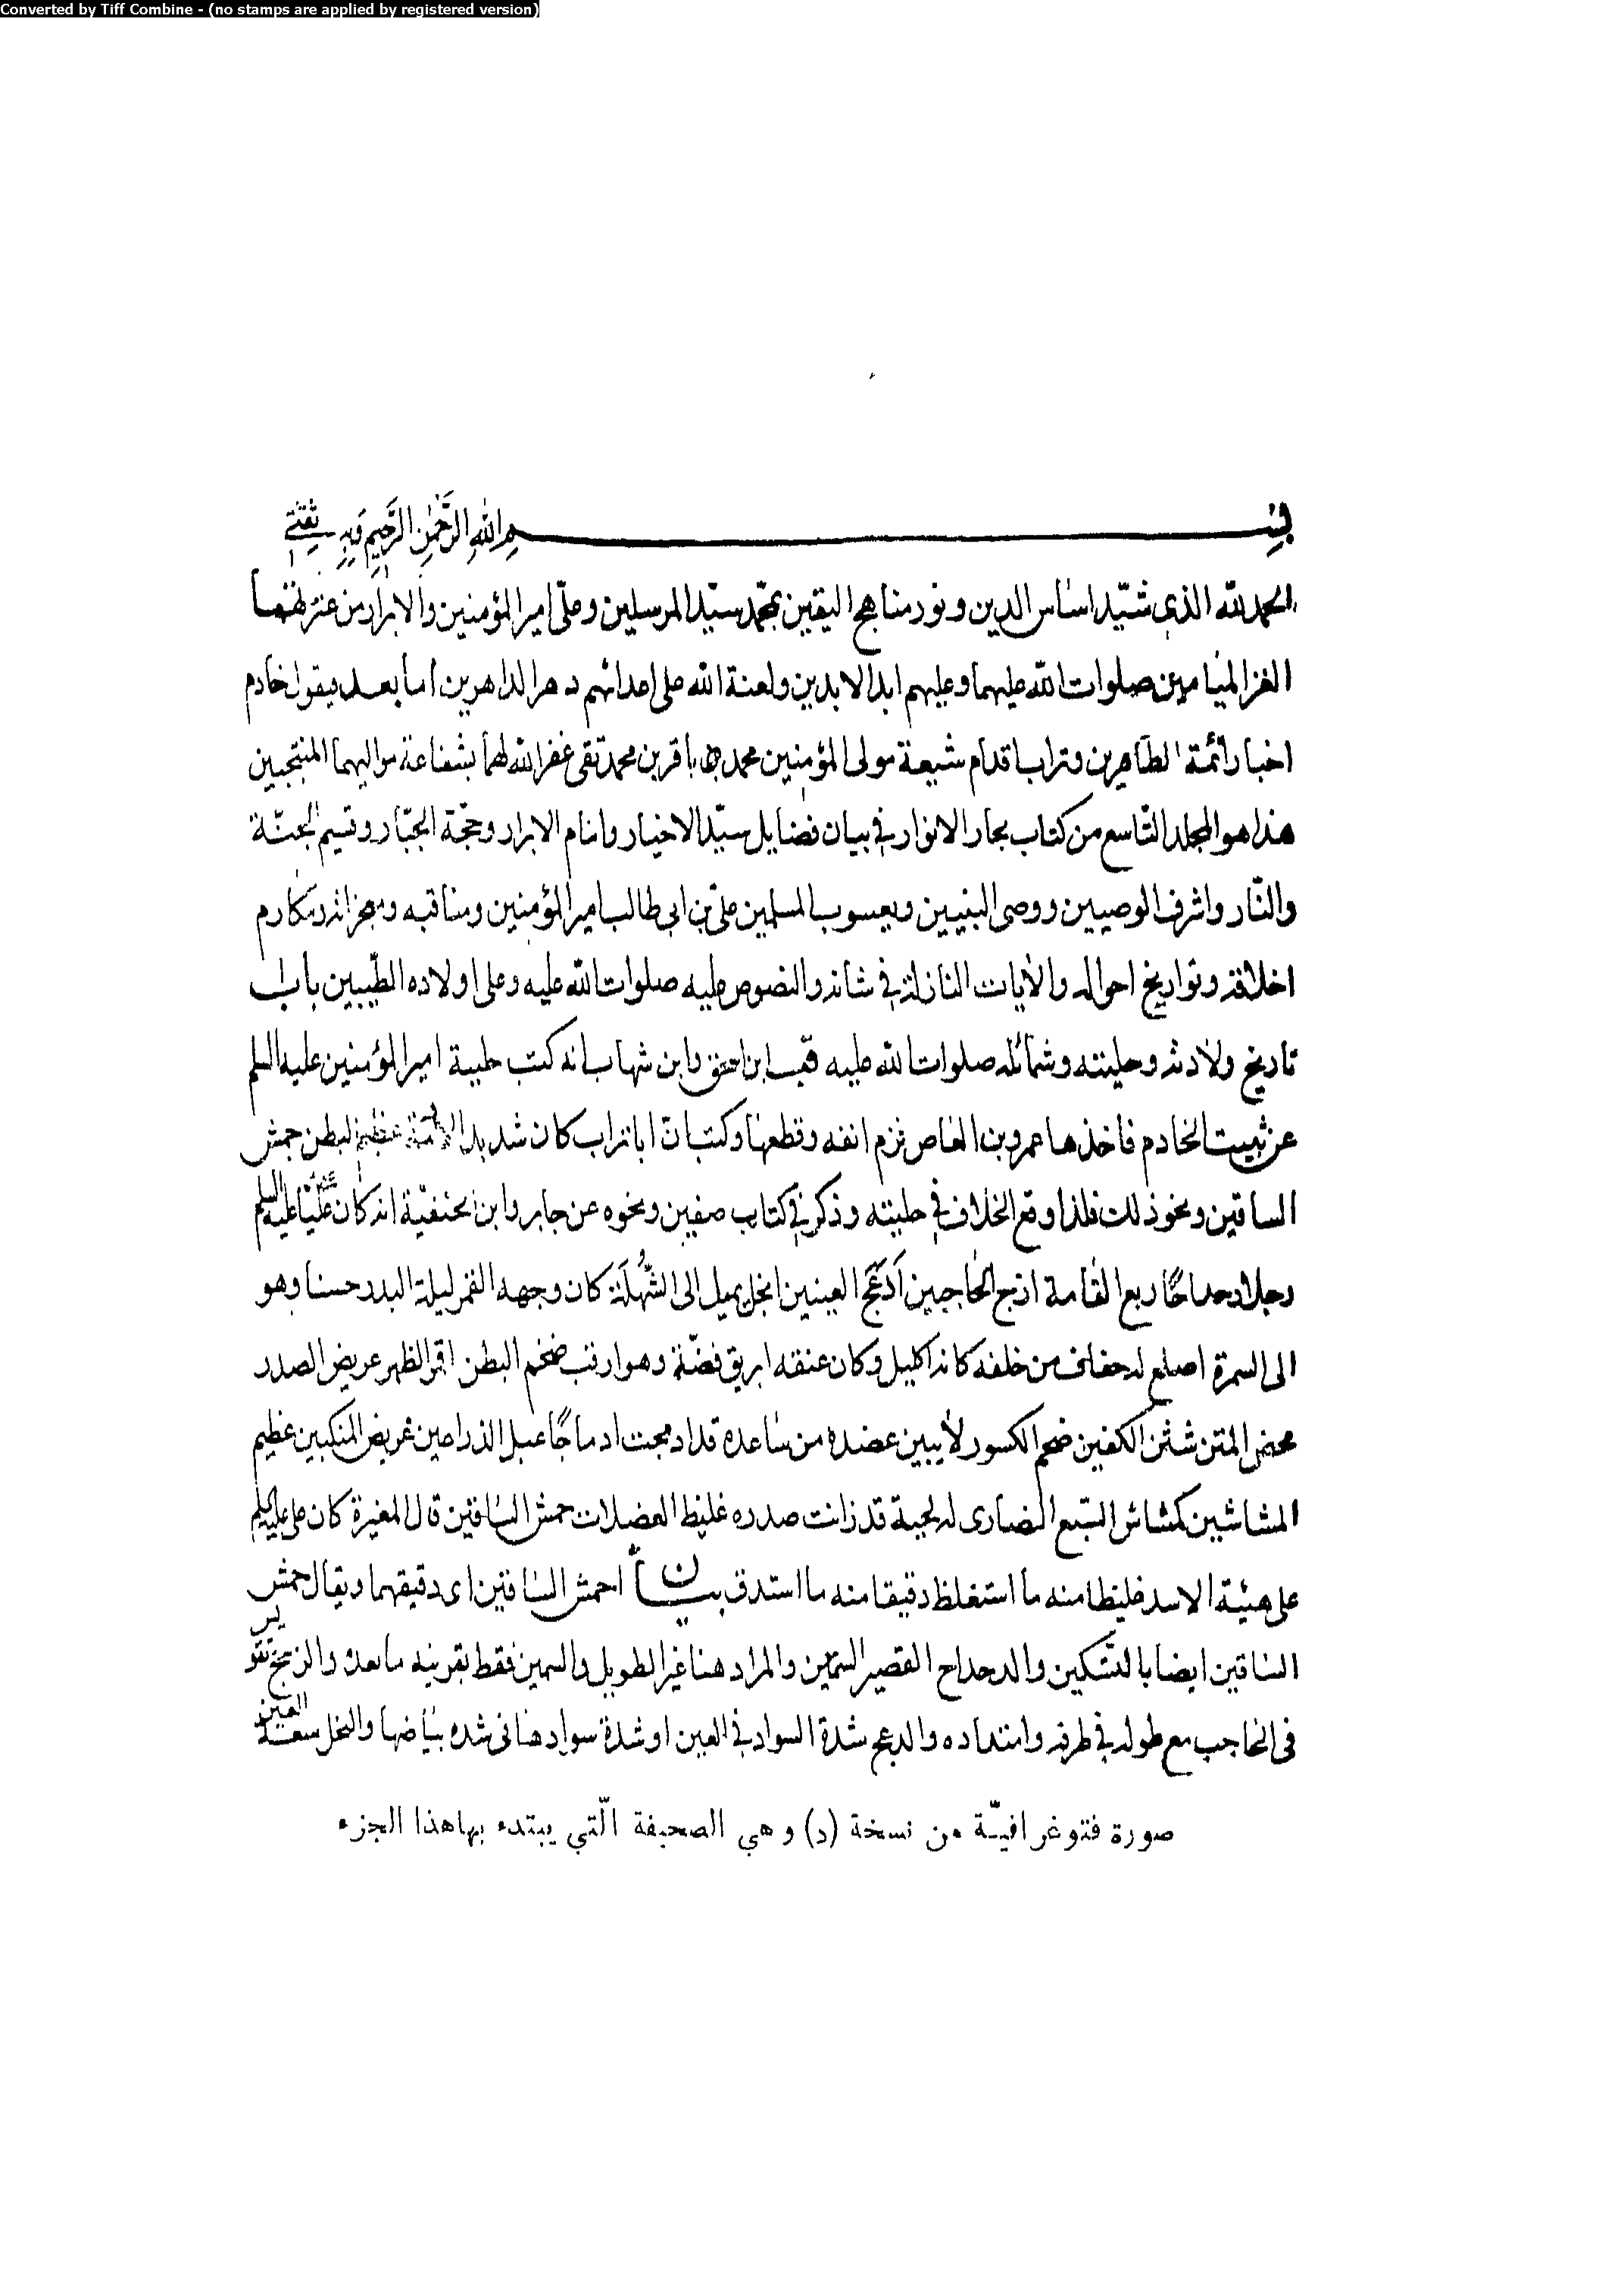 Converted by Tiff Combine - (no stamps are applied by registered version)
بسم الله الرَّحْمٰنِ الرَّحِيمِ وَبِهِ ثِقَتي
الحمد لله الذي شيّد اساس الدين و نور مناهج اليقين بمحمّد سيّد المرسلين و علّى امير المؤمنين والابرار من عترتهما
الغر الميامين صلوات الله عليهما و عليهم ابد الابدين ولعنة الله على اعدائهم دهر الداهرين أما بعد فيقول خادم
اخبار ائمّة الطاهرين وتراب اقدام شيعة مولى المؤمنين محمد باقر بن محمد تقى غفر الله لهما بشفاعة مواليهما المنتجبين
هذا هو المجلد التاسع من كتاب بحار الانوار في بيان فضايل سيّد الاخيار وامام الابرار وحجّة الجبّار وقسيم الجنّة
والنّار واشرف الوصيين ووصى النبيين ويعسوب المسلمين على بن ابى طالب امير المؤمنين ومناقبه ومعجزاته ومكارم
اخلاقه وتواريخ احواله والأيات النازلة في شانه والنصوص عليه صلوات الله عليه وعلى اولاده الطّيبين باب
تاريخ ولادته وحليته وشمائله صلوات الله عليه قب ابن اسحق وابن شهاب انه كتب حلية امير المؤمنين عليه السلم
عن ثبيت الخادم فاخذها عمرو بن العاص فزم انفه وقطعها وكتب انّ ابا تراب كان شديد الادمة عظيم البطن حمش
الساقين ونحو ذلك فلذا وقع الخلاف في حليته وذكر في كتاب صفين ونحوه عن جابر وابن الحنفيّة انه كان علىّ عليه السلم
رجلا دحداحًا ربع القامة ازج الحاجبين أدعَج العينين انجل يميل الى الشُهلَة كان وجهه القمر ليلة البدر حسنا وهو
الى السمرة اصلع له حفاف من خلفه كانه اكليل وكان عنقه ابريق فضّة وهو ارقب ضخم البطن اقرا الظهر عريض الصدر
محض المتن شثن الكفين ضخم الكسور لا يبين عضده من ساعده قد ادمجت ادماجًا عبل الذراعين عريض المنكبين عظيم
المشاشين كمشاش السّبع الضارى له لحية قد زانت صدره غليظ العضلات حمش الساقين قال المغيرة كان على عليه السلم
على هيئة الاسد غليظا منه ما استغلظ دقيقا منه ما استدق بيان احمش الساقين اى دقيقهما ويقال حمش
الساقين ايضا بالتسكين والدحداح القصير السمين والمراد هنا غير الطويل والسمين فقط بقرينة ما بعده والزجج تقويس
فى الحاجب مع طوله في طرفه وامتداده والدعج شدة السواد في العين او شدة سوادها فى شدة بياضها والنجل سعة العين
صورة فتوغرافيّة من نسخة (د) وهي الصحيفة الّتي يبتدء بهاهذا الجزء